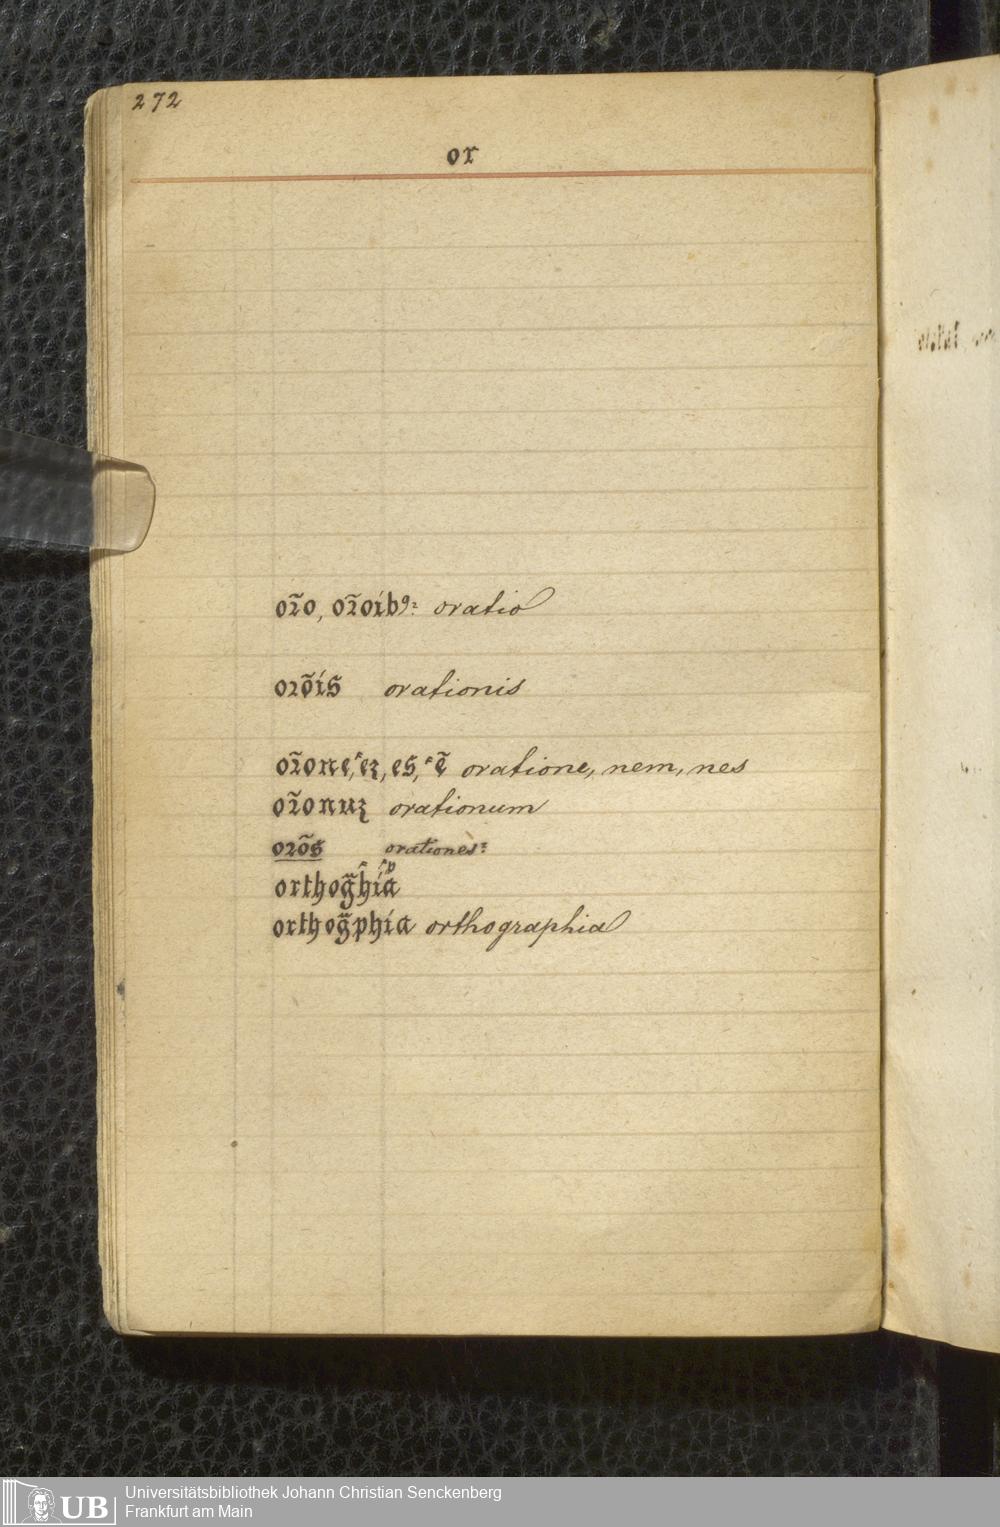 272
or
oꝛ̃o, oꝛ̃oíbꝰ: oratio
oꝛõis orationis
oꝛ̃one, eꝫ, es, ẽ oratione, nem, nes
oꝛ̃onuꝫ orationum
oꝛõs orationes:
orthog̃hía
orthog̃phía orthographia
UB Universitätsbibliothek Johann Christian Senckenberg
Frankfurt am Main